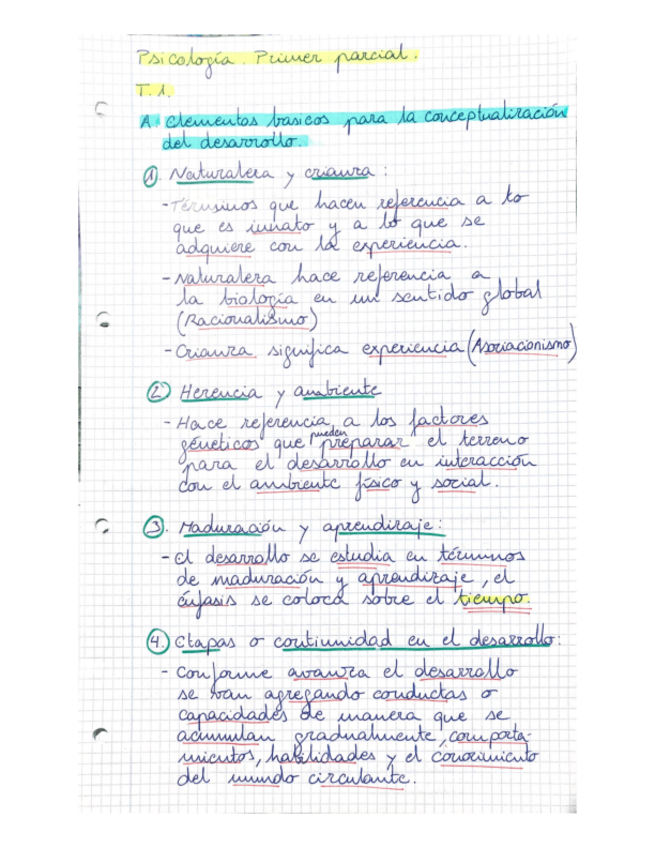 Psicología. Primer parcial.
T.1.
A. Elementos basicos para la conceptualización
del desarrollo.
1. Naturaleza y crianza:
- Términos que hacen referencia a lo
que es innato y a lo que se
adquiere con la experiencia.
- Naturaleza hace referencia a
la biología en un sentido global
(Racionalismo)
- Crianza significa experiencia (Asociacionismo)
2. Herencia y ambiente
- Hace referencia a los factores
géneticos que pueden preparar el terreno
para el desarrollo en interacción
con el ambiente físico y social.
3. Maduración y aprendizaje:
- El desarrollo se estudia en términos
de maduración y aprendizaje, el
énfasis se coloca sobre el tiempo.
4. Etapas o continuidad en el desarrollo:
- Conforme avanza el desarrollo
se van agregando conductas o
capacidades de manera que se
acumulan gradualmente, comporta-
mientos, habilidades y el conocimiento
del mundo circulante.